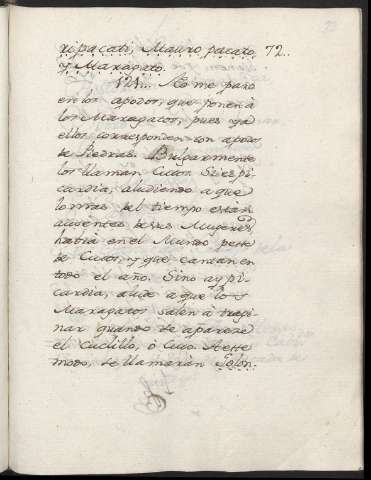 ripacati, Mauro pacato, 72..
y Maragato.
121... No me paro
en los apodos, que ponen à
los Maragatos, pues ya
ellos corresponden con apodo
de Piedras. Bulgarmente
los llaman Cucos. Si es pi-
cardia, aludiendo a que
lo mas del tiempo estàn
ausentes de sus Mugeres,
habia en el Mundo peste
de Cucos, y que cantan en
todo el año. Si no ay pi-
cardia, alude a que los
Maragatos salen à traji-
nar quando se apareze
el Cuclillo, ò Cuco. A este
modo, se llamaràn Golon-